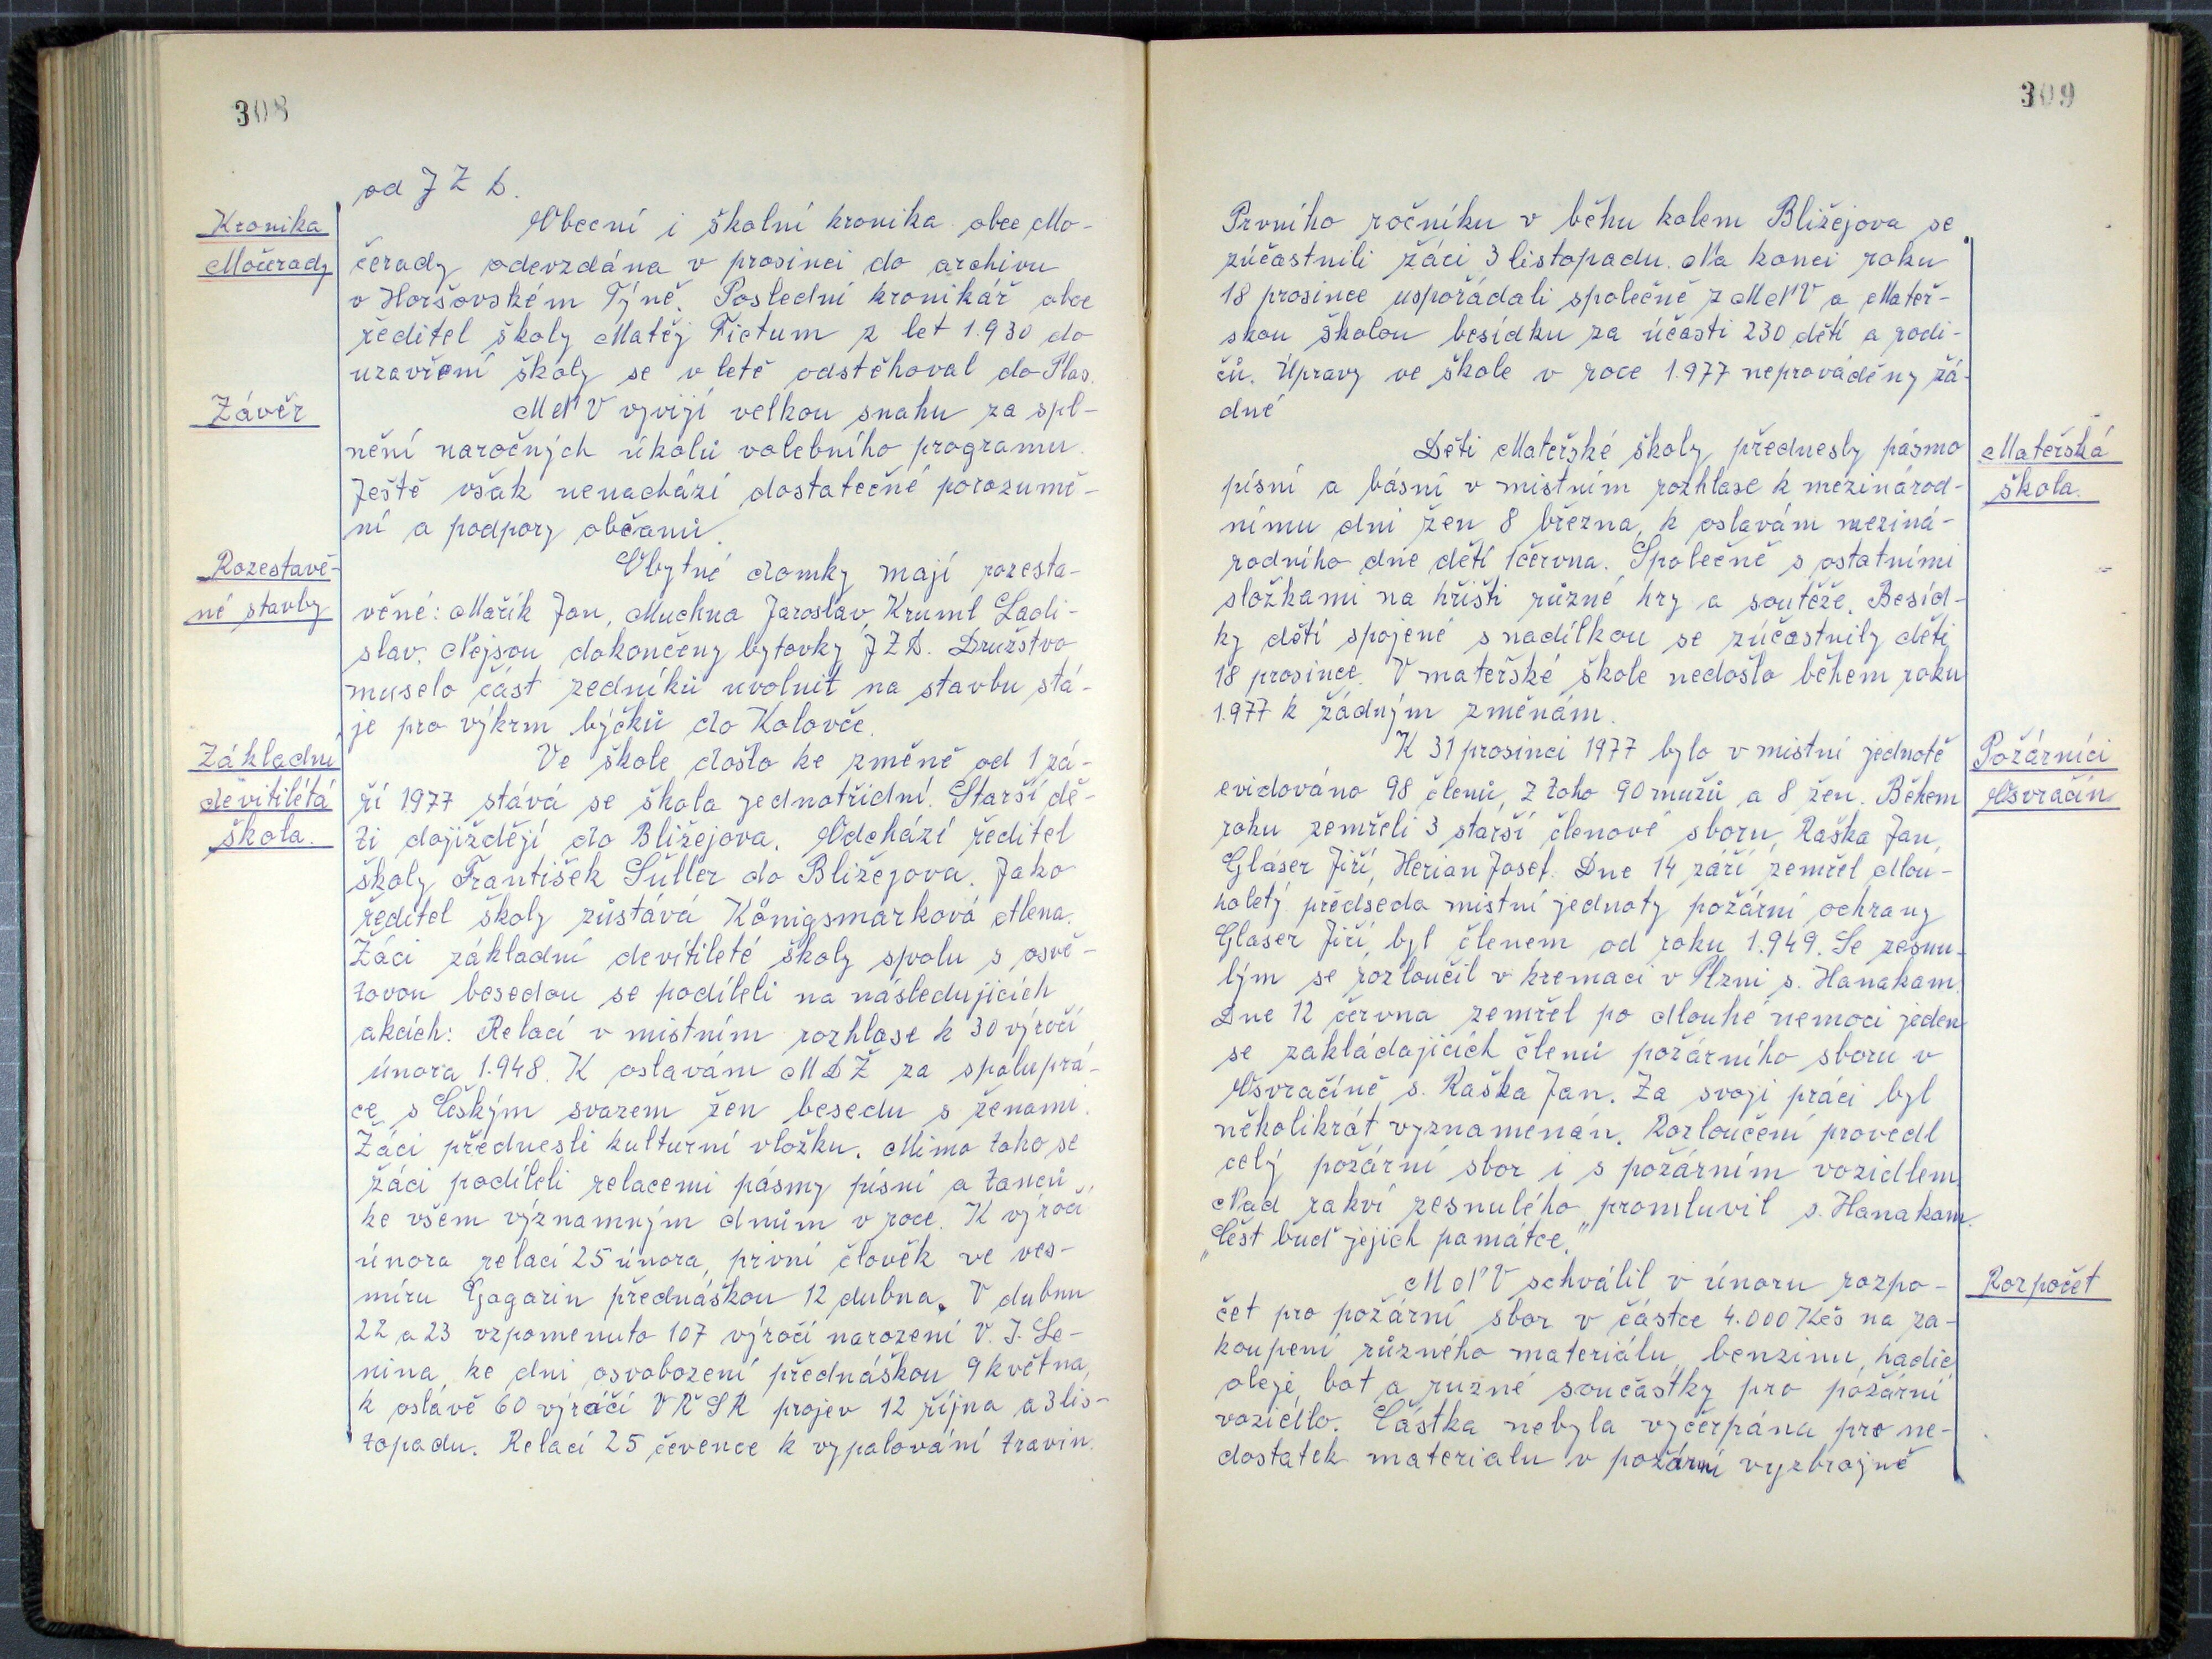 308
od J Z D.
Kronika
Močerady
Obecní i školní kronika obce Mo-
čerady odevzdána v prosinci do archivu
v Horšovském Týně. Poslední kronikář obce
ředitel školy Matěj Fictum z let 1.930 do
uzavření školy se v letě odstěhoval do Plas.
Závěr
MNV vyvijí velkou snahu za spl-
nění naročných úkolů volebního programu.
Ještě však nenachází dostatečné porozumě-
ní a podpory občanů.
Rozestavě-
né stavby
Obytné domky mají rozesta-
věné: Mařík Jan, Muchna Jaroslav, Kruml Ladi-
slav. Nejsou dokončeny bytovky JZD. Družstvo
muselo část zedníků uvolnit na stavbu stá-
je pro výkrm býčků do Kolovče.
Základní
devítilétá
škola.
Ve škole došlo ke změně od 1 zá-
ří 1977 stává se škola jednotřídní. Starší dě-
ti dojíždějí do Bližejova. Odchází ředitel
školy František Šuller do Bližejova. Jako
ředitel školy zůstává Königsmarková Alena.
Žáci základní devítileté školy spolu s osvě-
tovou besedou se podíleli na následujících
akcích: Relací v místním rozhlase k 30 výročí
února 1.948. K oslavám MDŽ za spoluprá-
ce s Českým svazem žen besedu s ženami.
Žáci přednesli kulturní vložku. Mimo toho se
žáci podíleli relacemi pásmy písní a tanců
ke všem významným dnům v roce. K výročí
února relací 25 února, první člověk ve ves-
míru Gagarin přednáškou 12 dubna. V dubnu
22 a 23 vzpomenuto 107 výročí narození V. J. Le-
nina, ke dni osvobození přednáškou 9 května,
k oslavě 60 výročí VŘSR projev 12 října a 3 lis-
topadu. Relací 25 čevence k vypalování travin.
309
Prvního ročníku v běhu kolem Bližejova se
zúčastnili žáci 3 listopadu. Na konci roku
18 prosince uspořádali společně z MNV a Mateř-
skou školou besídku za účasti 230 dětí a rodi-
čů. Úpravy ve škole v roce 1.977 neprováděny žá-
dné
Mateřská
škola.
Děti Mateřské školy přednesly pásmo
písní a básní v místním rozhlase k mezinárod-
nímu dni žen 8 března, k oslavám meziná-
rodního dne dětí 1 června. Společně s ostatními
složkami na hřišti různé hry a soutěže. Besíd-
ky dětí spojené s nadílkou se zúčastnily děti
18 prosince. V mateřské škole nedošlo během roku
1.977 k žádným změnám.
Požárníci
Osvračín
K 31 prosinci 1977 bylo v místní jednotě
evidováno 98 členů, z toho 90 mužů a 8 žen. Během
roku zemřeli 3 starší členové sboru, Raška Jan,
Gláser Jiří, Herian Josef. Dne 14 září zemřel dlou-
holetý předseda místní jednoty požární ochrany
Glaser Jiří, byl členem od roku 1.949. Se zesnu-
lým se rozloučil v kremaci v Plzni s. Hanakam.
Dne 12 června zemřel po dlouhé nemoci jeden
se zakládajících členů požárního sboru v
Osvračíně s. Raška Jan. Za svoji práci byl
několikrát vyznamenán. Rozloučení provedl
celý požární sbor i s požárním vozidlem.
Nad rakví zesnulého promluvil s. Hanakam.
„Čest buď jejich památce."
Rozpočet
MNV schválil v únoru rozpo-
čet pro požární sbor v částce 4.000 Kčs na za-
koupení různého materiálu, benzinu, hadic
oleje, bot a ruzné součástky pro požární
vozidlo. Částka nebyla vyčerpána pro ne-
dostatek materialu v požární vyzbrojně